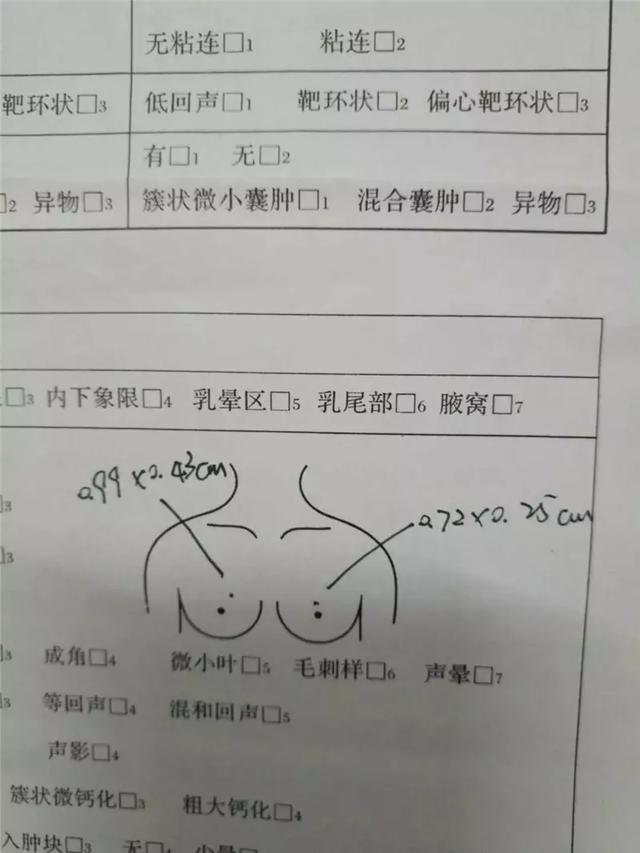 无粘连□1 粘连□2
靶环状□3 低回声□1 靶环状□2 偏心靶环状□3
有□1 无□2
□2 异物□3 簇状微小囊肿□1 混合囊肿□2 异物□3
□3 内下象限□4 乳晕区□5 乳尾部□6 腋窝□7
0.99×0.43cm
0.72×0.25cm
3
3
3 成角□4 微小叶□5 毛刺样□6 声晕□7
3 等回声□4 混和回声□5
声影□4
簇状微钙化□3 粗大钙化□4
入肿块□3 无□4 少量□